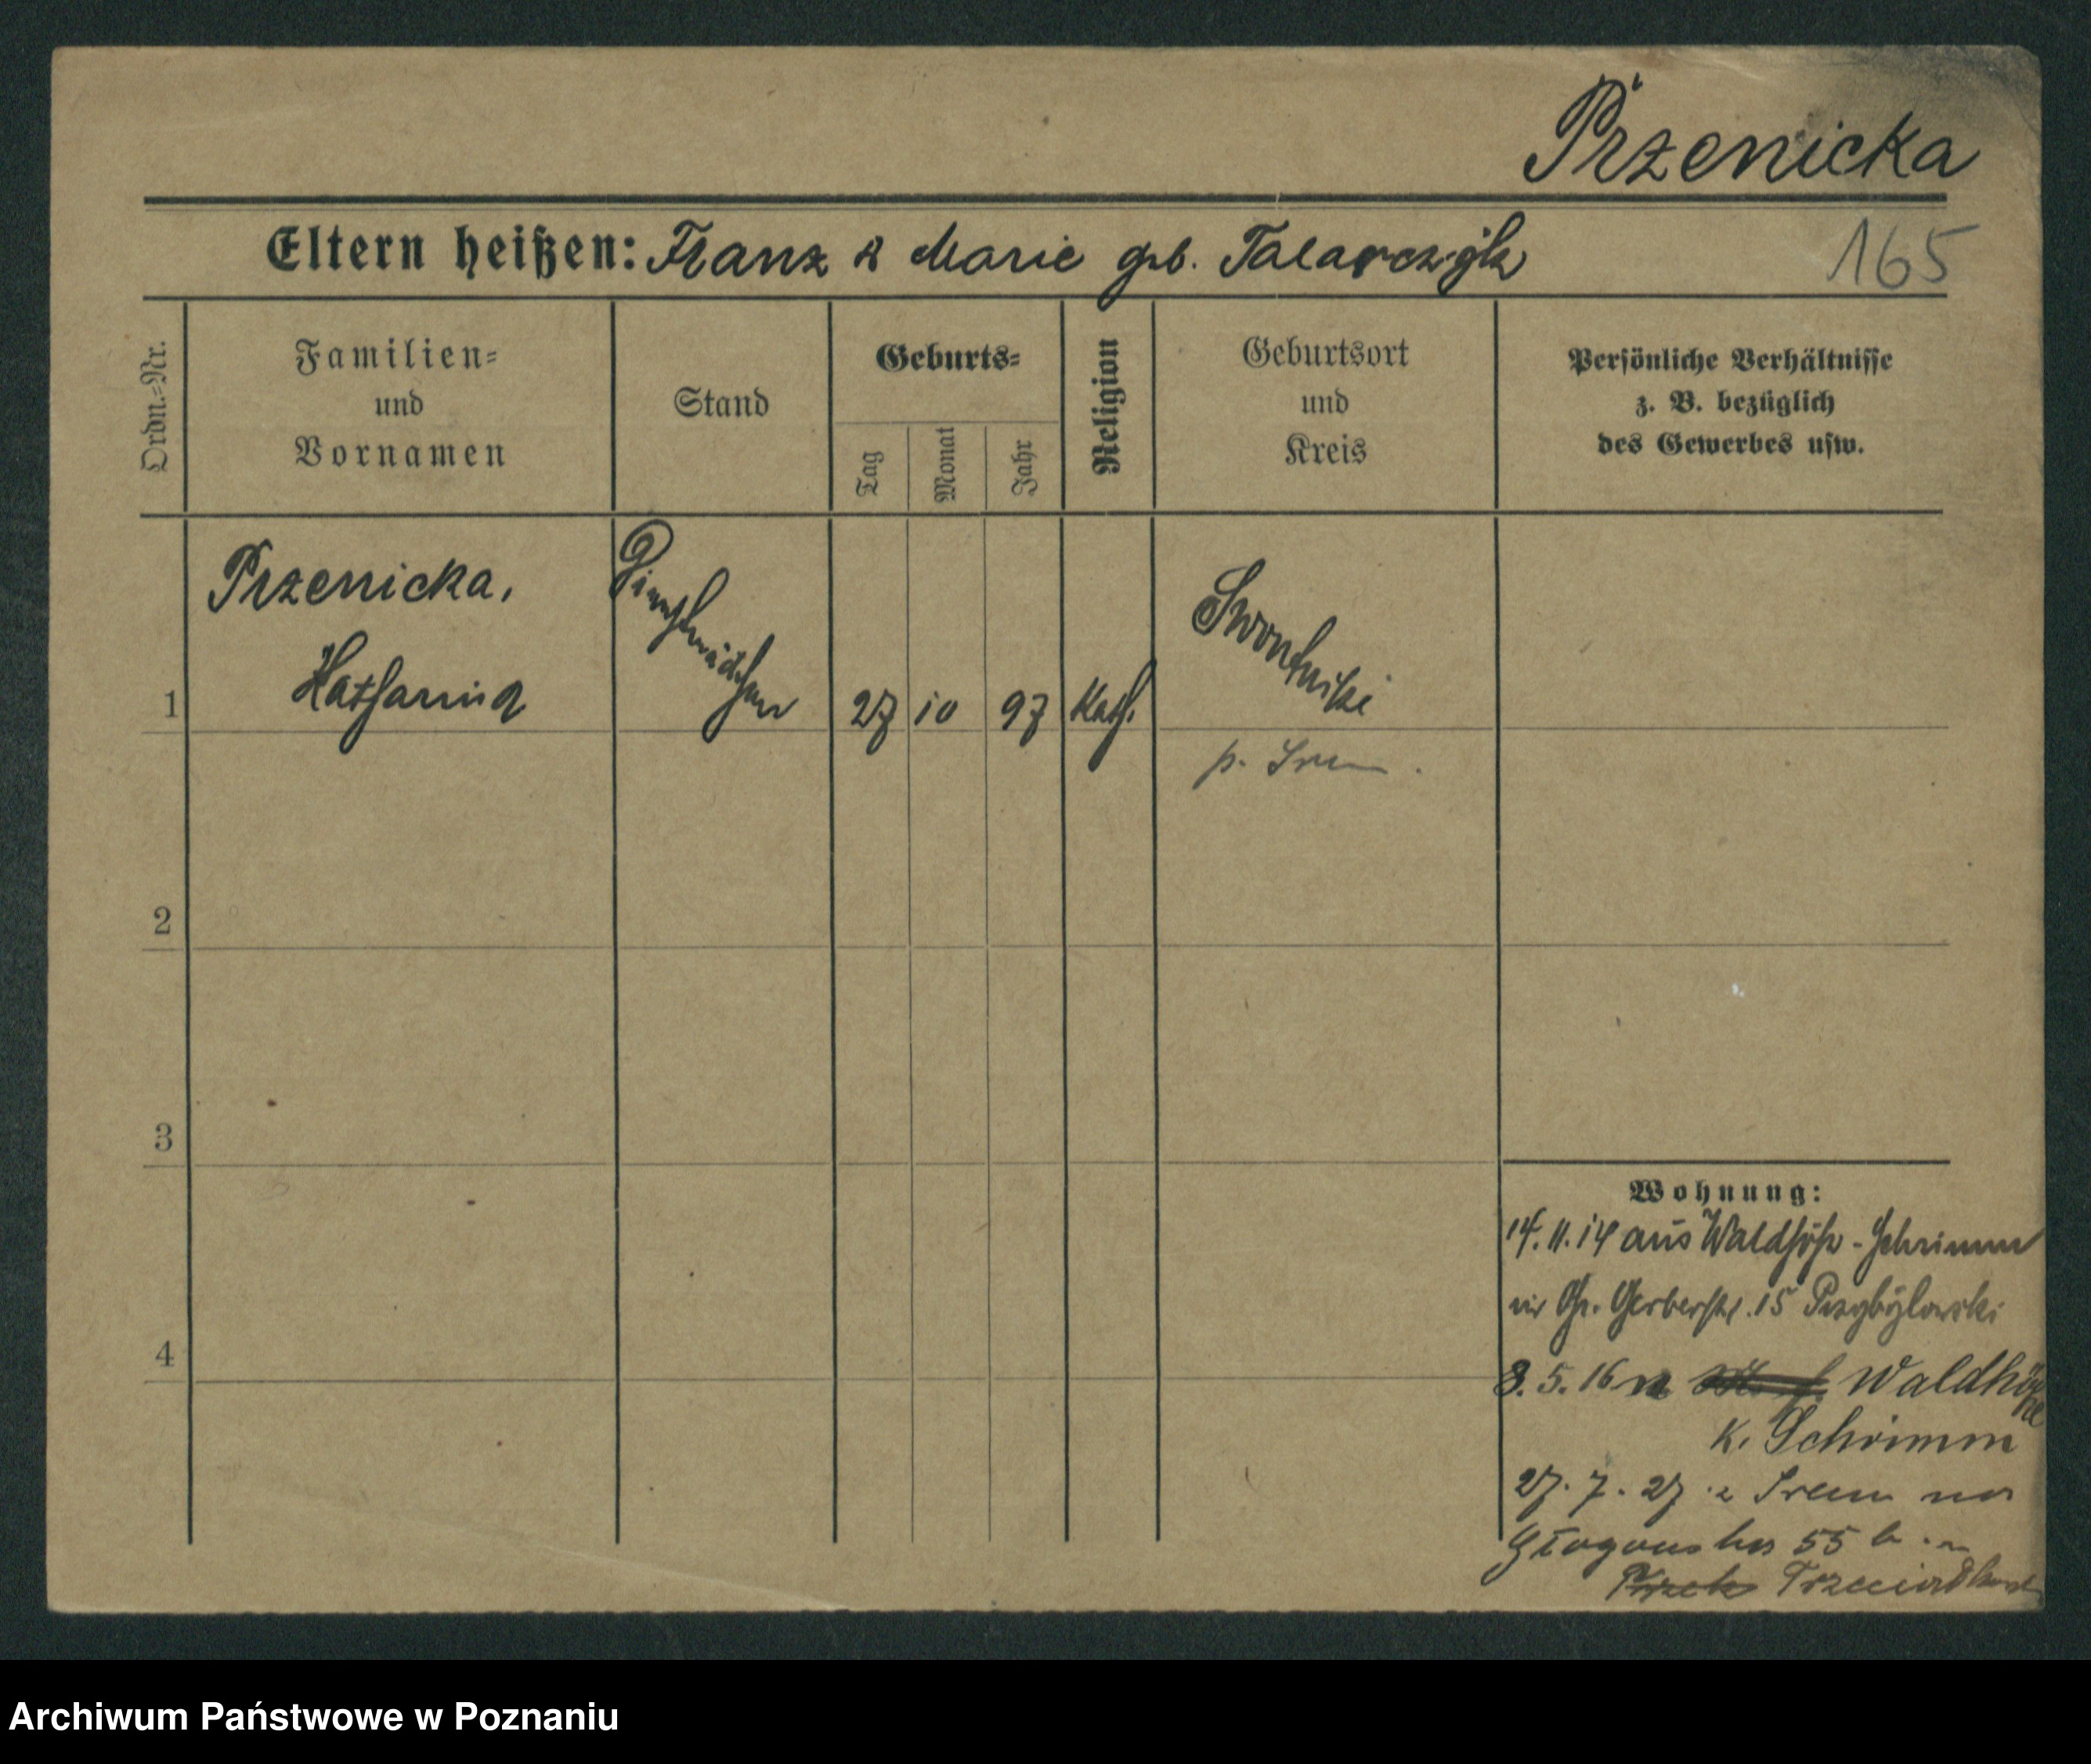 Przenicka
Eltern heißen: Franz & Marie geb. Talarczyk
165
Ordn.-Nr.
Familien-
und
Vornamen
Stand
Geburts-
Tag
Monat
Jahr
Religion
Geburtsort
und
Kreis
Persönliche Verhältnisse
z. B. bezüglich
des Gewerbes usw.
1
Przenicka,
Katharina
Dienstmädchen
27
10
97
kath.
p. Srem
2
3
4
Wohnung:
14.11.14 aus Waldhöh - Schrimm
in Gr. Gerberstr. 15 Przybylowski
8.5.16 n Waldhöhe
K. Schrimm
27.7.27 z Srem na
Głogowska 55 b
Archiwum Państwowe w Poznaniu